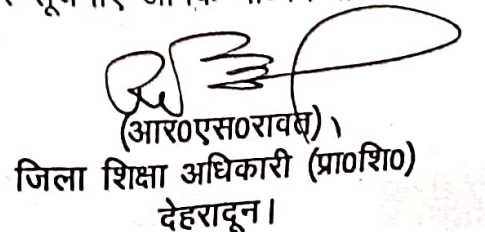 (आर0एस0रावत)
जिला शिक्षा अधिकारी (प्रा0शि0)
देहरादून।